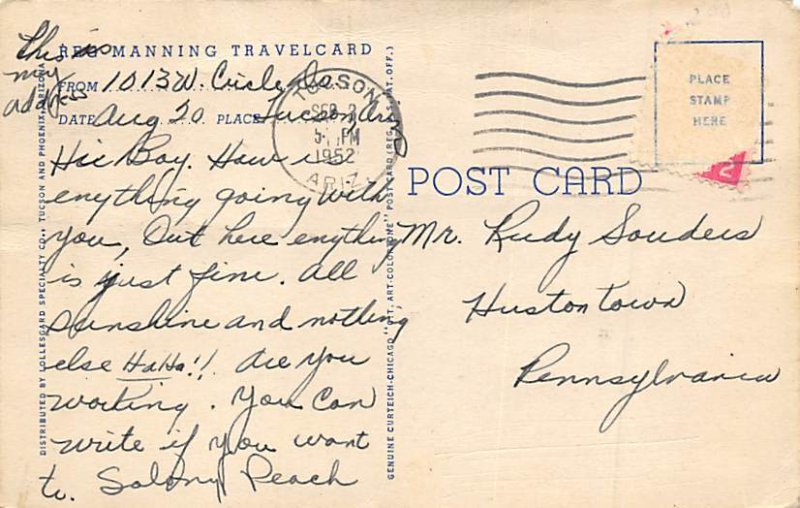 This is
my
address
REG MANNING TRAVELCARD
FROM 1013 W.
DATE Aug 20 PLACE Tucson Ariz
Hie Boy. How is
enything going with
you, Out here enything
is just fine. all
sunshine and nothing
else HaHa!! are you
working. You can
write if you want
to. Peach
TUCSON
SEP 2
PM
1952
ARIZ.
PLACE
STAMP
HERE
2
POST CARD
Mr. Rudy Souders
Hustontown
Pennsylvania
DISTRIBUTED BY LOLLESGARD SPECIALTY CO., TUCSON AND PHOENIX, ARIZONA
GENUINE CURTEICH-CHICAGO "C.T. ART-COLORTONE" POST CARD (REG. U.S. PAT. OFF.)